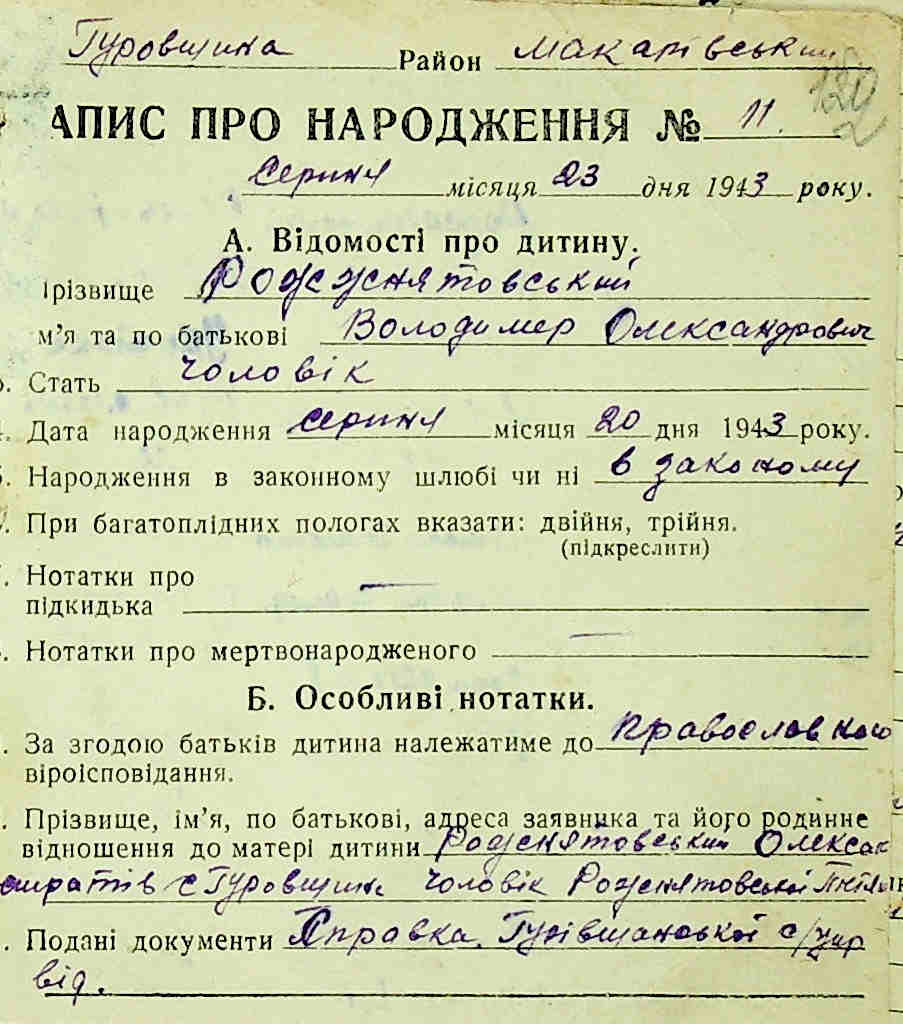 Гуровщина Район Макарівський
120
АПИС ПРО НАРОДЖЕННЯ № 11.
Серпня місяця 23 дня 1943 року.
А. Відомості про дитину.
Ірізвище Рожжнятовський
м'я та по батькові Володимер Олександрович
Стать Чоловік
Дата народження серпня місяця 20 дня 1943 року.
Народження в законному шлюбі чи ні в законому
При багатоплідних пологах вказати: двійня, трійня.
(підкреслити)
Нотатки про
підкидька —
Нотатки про мертвонародженого —
Б. Особливі нотатки.
За згодою батьків дитина належатиме до православного
віроісповідання.
Прізвище, ім'я, по батькові, адреса заявника та його родинне
відношення до матері дитини Рожнятовський Олексан
с Гуровщина чоловік Рожнятовської
Подані документи Справка Гурівщанської с/упр
від.